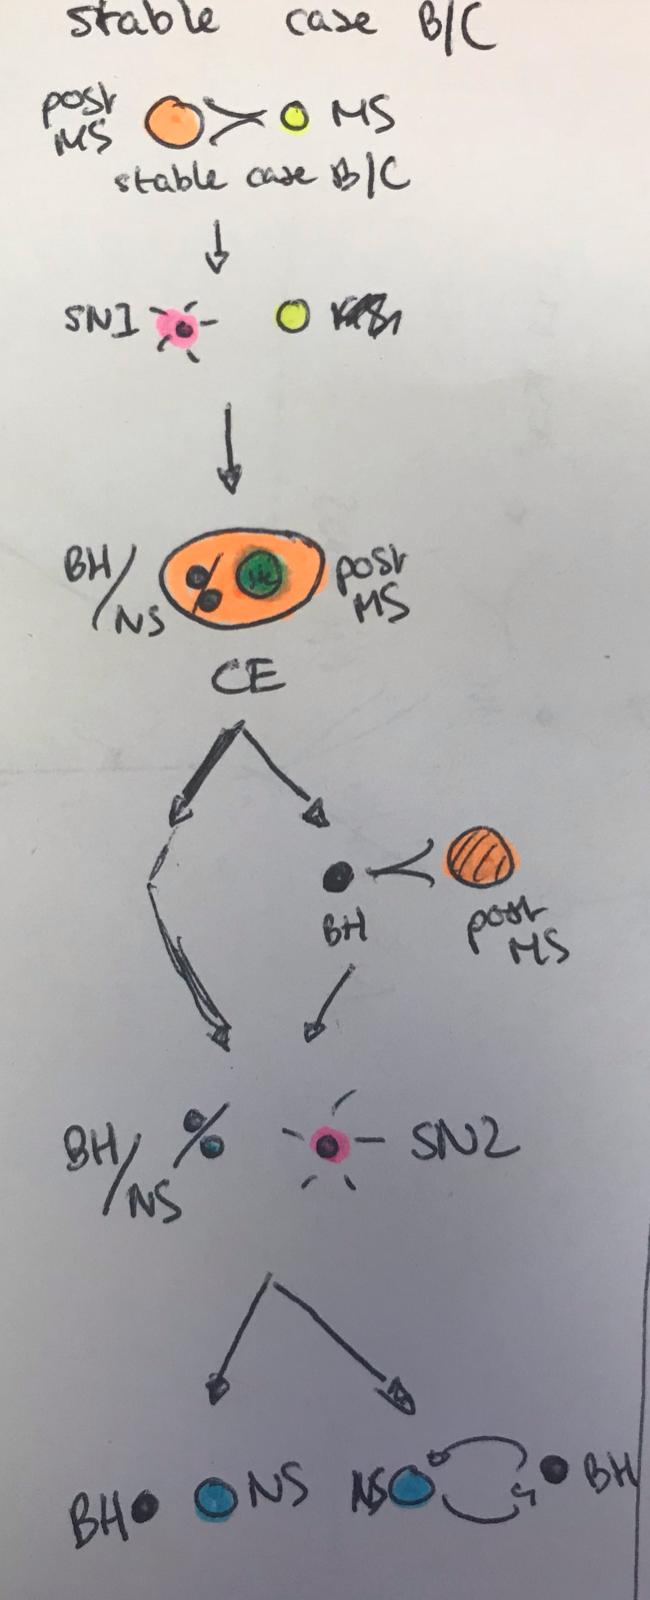 stable case B/C
post MS
MS
stable case B/C
SN1
BH/NS
post MS
CE
BH
post MS
BH/NS
SN2
BH
NS
NS
BH